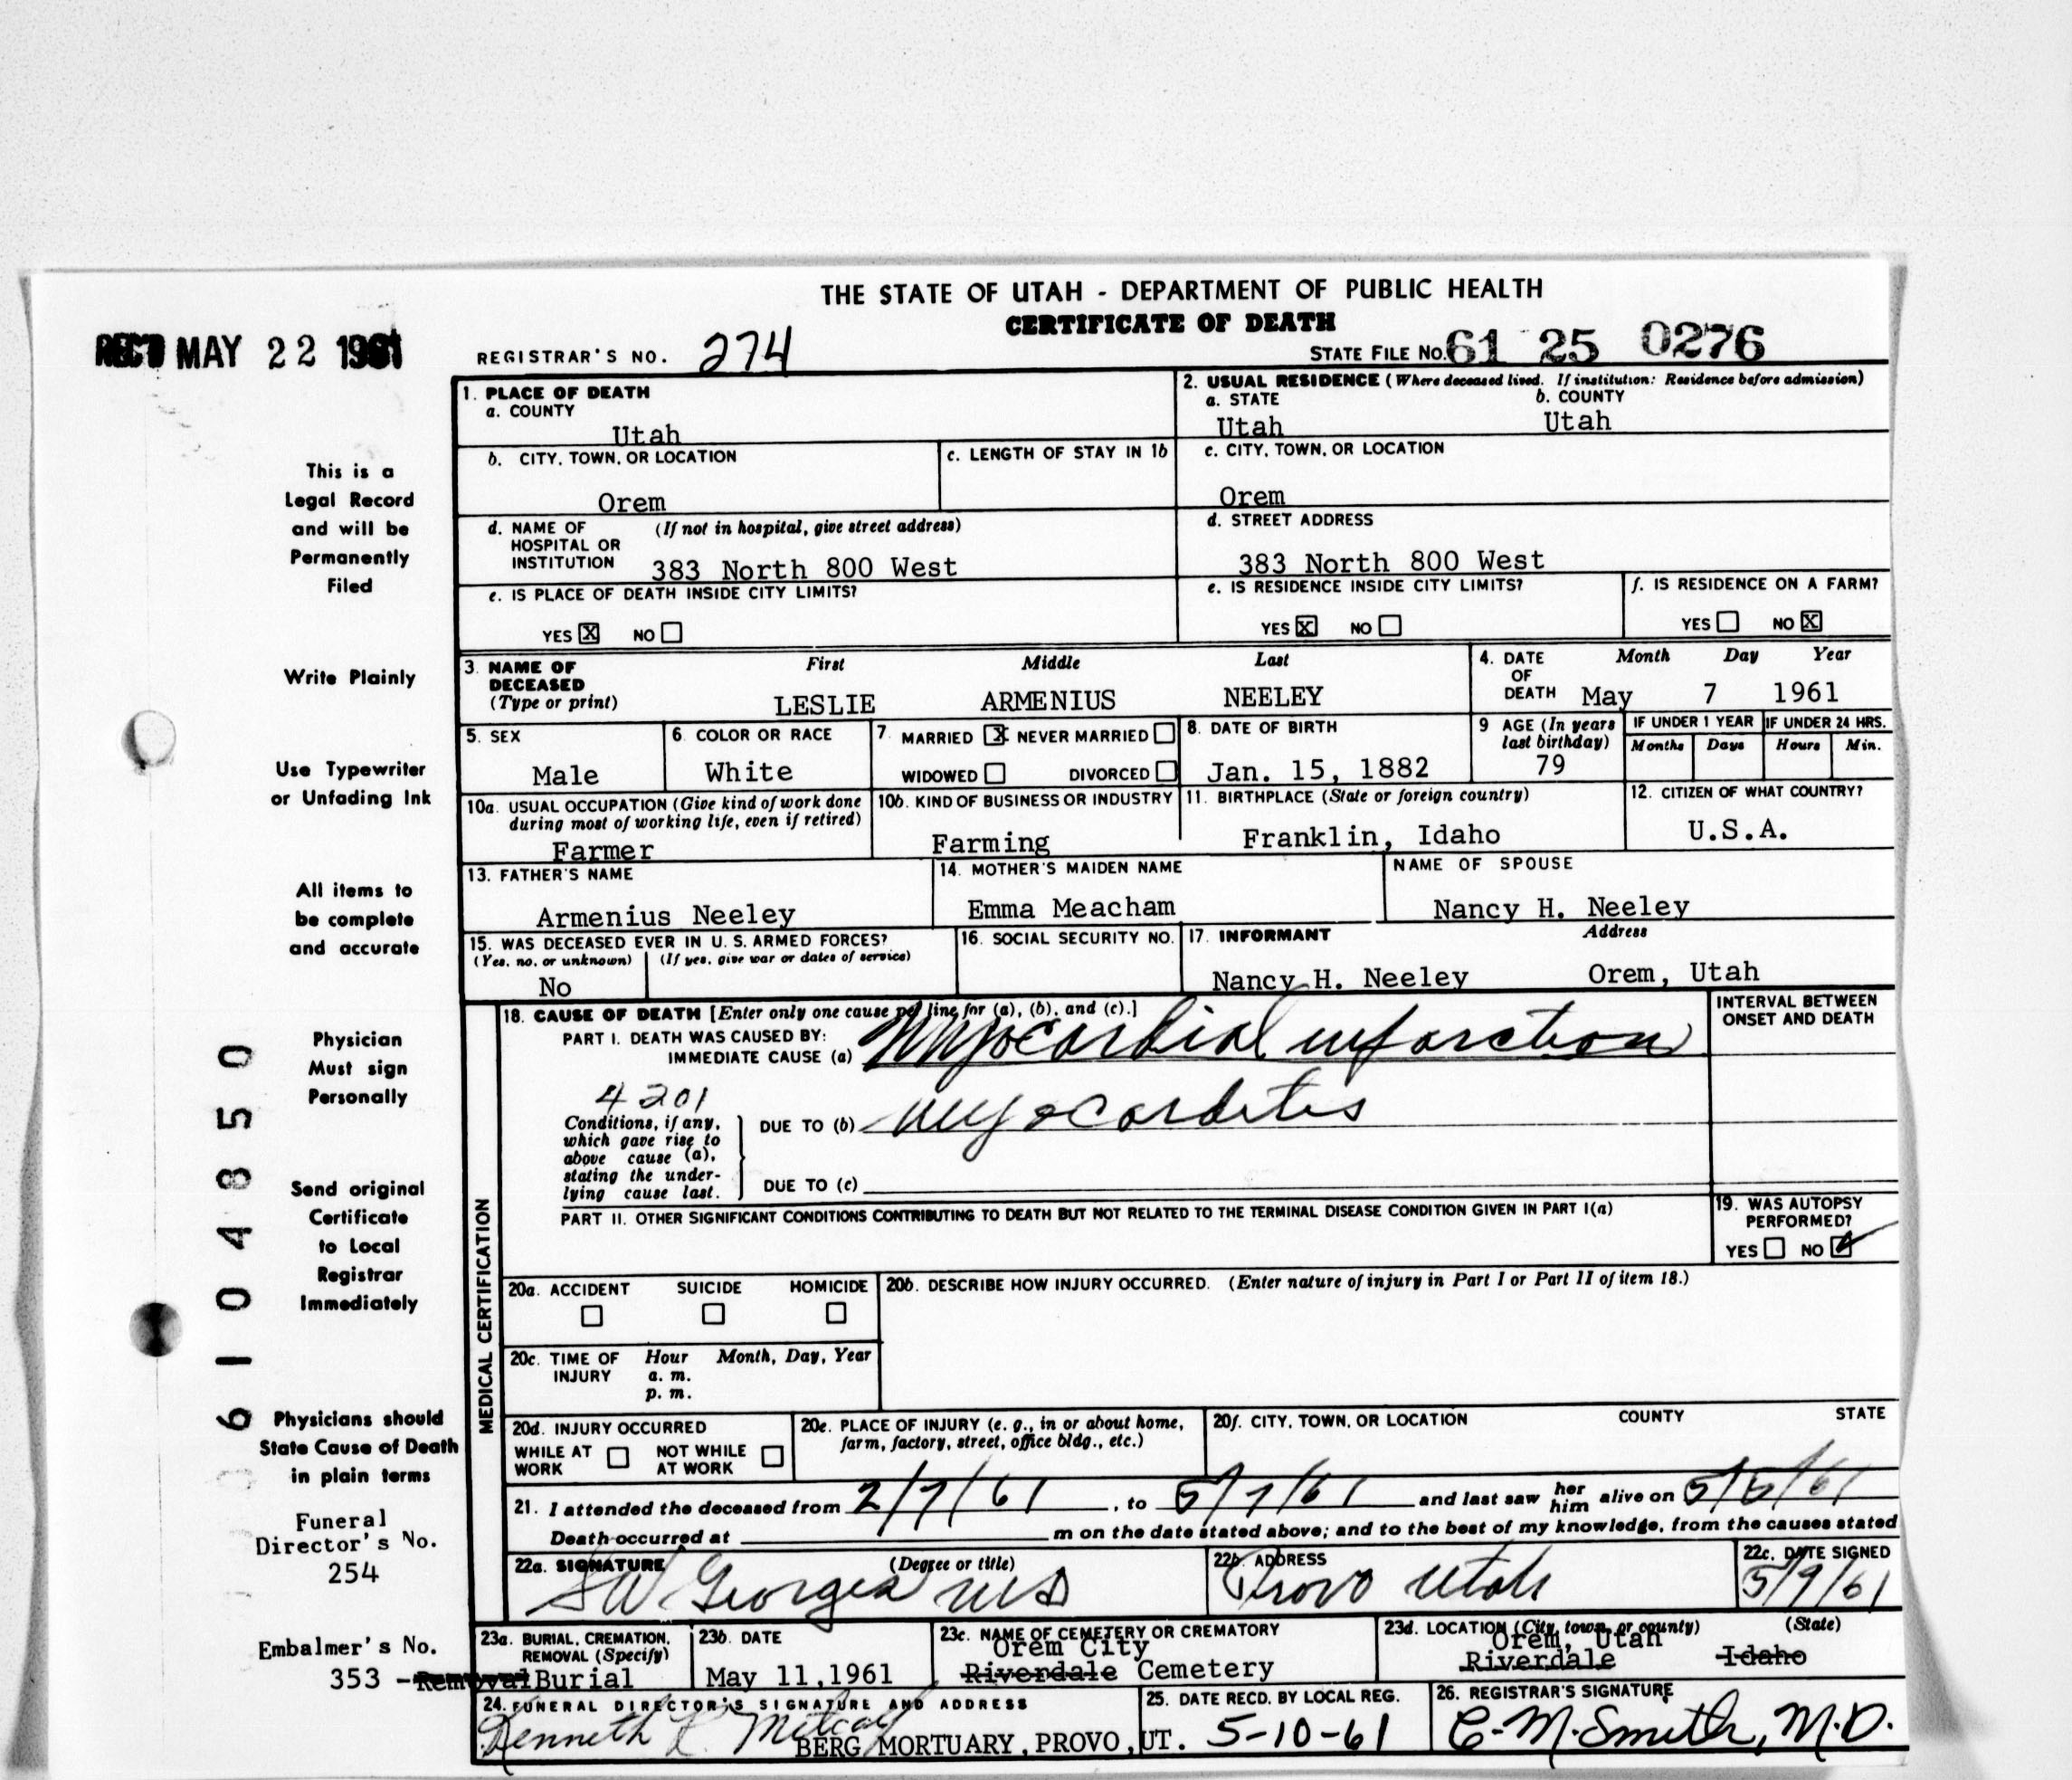 THE STATE OF UTAH - DEPARTMENT OF PUBLIC HEALTH
CERTIFICATE OF DEATH
REC'D MAY 22 1961
REGISTRAR'S NO. 274
STATE FILE NO. 61 25 0276
1. PLACE OF DEATH
a. COUNTY
Utah
2. USUAL RESIDENCE (Where deceased lived. If institution: Residence before admission)
a. STATE b. COUNTY
Utah Utah
b. CITY, TOWN, OR LOCATION
Orem
c. LENGTH OF STAY IN 1b
c. CITY, TOWN, OR LOCATION
Orem
d. NAME OF (If not in hospital, give street address)
HOSPITAL OR
INSTITUTION 383 North 800 West
d. STREET ADDRESS
383 North 800 West
e. IS PLACE OF DEATH INSIDE CITY LIMITS?
YES X NO
e. IS RESIDENCE INSIDE CITY LIMITS?
YES X NO
f. IS RESIDENCE ON A FARM?
YES NO X
3. NAME OF First Middle Last
DECEASED
(Type or print) LESLIE ARMENIUS NEELEY
4. DATE Month Day Year
OF
DEATH May 7 1961
5. SEX
Male
6. COLOR OR RACE
White
7. MARRIED X NEVER MARRIED
WIDOWED DIVORCED
8. DATE OF BIRTH
Jan. 15, 1882
9 AGE (In years
last birthday)
79
IF UNDER 1 YEAR IF UNDER 24 HRS.
Months Days Hours Min.
10a. USUAL OCCUPATION (Give kind of work done
during most of working life, even if retired)
Farmer
10b. KIND OF BUSINESS OR INDUSTRY
Farming
11. BIRTHPLACE (State or foreign country)
Franklin, Idaho
12. CITIZEN OF WHAT COUNTRY?
U.S.A.
13. FATHER'S NAME
Armenius Neeley
14. MOTHER'S MAIDEN NAME
Emma Meacham
NAME OF SPOUSE
Nancy H. Neeley
15. WAS DECEASED EVER IN U. S. ARMED FORCES?
(Yes, no, or unknown) (If yes, give war or dates of service)
No
16. SOCIAL SECURITY NO.
17. INFORMANT Address
Nancy H. Neeley Orem, Utah
MEDICAL CERTIFICATION
18. CAUSE OF DEATH [Enter only one cause per line for (a), (b), and (c).]
PART I. DEATH WAS CAUSED BY:
IMMEDIATE CAUSE (a) Myocardial infarction
INTERVAL BETWEEN
ONSET AND DEATH
4201
Conditions, if any,
which gave rise to
above cause (a),
stating the under-
lying cause last.
DUE TO (b) Myocarditis
DUE TO (c)
PART II. OTHER SIGNIFICANT CONDITIONS CONTRIBUTING TO DEATH BUT NOT RELATED TO THE TERMINAL DISEASE CONDITION GIVEN IN PART I(a)
19. WAS AUTOPSY
PERFORMED?
YES NO ✓
20a. ACCIDENT SUICIDE HOMICIDE
20b. DESCRIBE HOW INJURY OCCURRED. (Enter nature of injury in Part I or Part II of item 18.)
20c. TIME OF Hour Month, Day, Year
INJURY a. m.
p. m.
20d. INJURY OCCURRED
WHILE AT NOT WHILE
WORK AT WORK
20e. PLACE OF INJURY (e. g., in or about home,
farm, factory, street, office bldg., etc.)
20f. CITY, TOWN, OR LOCATION COUNTY STATE
21. I attended the deceased from 2/7/61, to 5/7/61 and last saw her him alive on 5/5/61
Death occurred at m on the date stated above; and to the best of my knowledge, from the causes stated
22a. SIGNATURE (Degree or title)
SW Georges MD
22b. ADDRESS
Provo Utah
22c. DATE SIGNED
5/9/61
23a. BURIAL, CREMATION,
REMOVAL (Specify)
Removal Burial
23b. DATE
May 11,1961
23c. NAME OF CEMETERY OR CREMATORY
Orem City
Riverdale Cemetery
23d. LOCATION (City, town, or county) (State)
Orem, Utah
Riverdale Idaho
24. FUNERAL DIRECTOR'S SIGNATURE AND ADDRESS
Kenneth R. Metcalf
BERG MORTUARY, PROVO, UT.
25. DATE RECD. BY LOCAL REG.
5-10-61
26. REGISTRAR'S SIGNATURE
C. M. Smith, M.D.
This is a
Legal Record
and will be
Permanently
Filed
Write Plainly
Use Typewriter
or Unfading Ink
All items to
be complete
and accurate
Physician
Must sign
Personally
Send original
Certificate
to Local
Registrar
Immediately
Physicians should
State Cause of Death
in plain terms
Funeral
Director's No.
254
Embalmer's No.
353
6104850